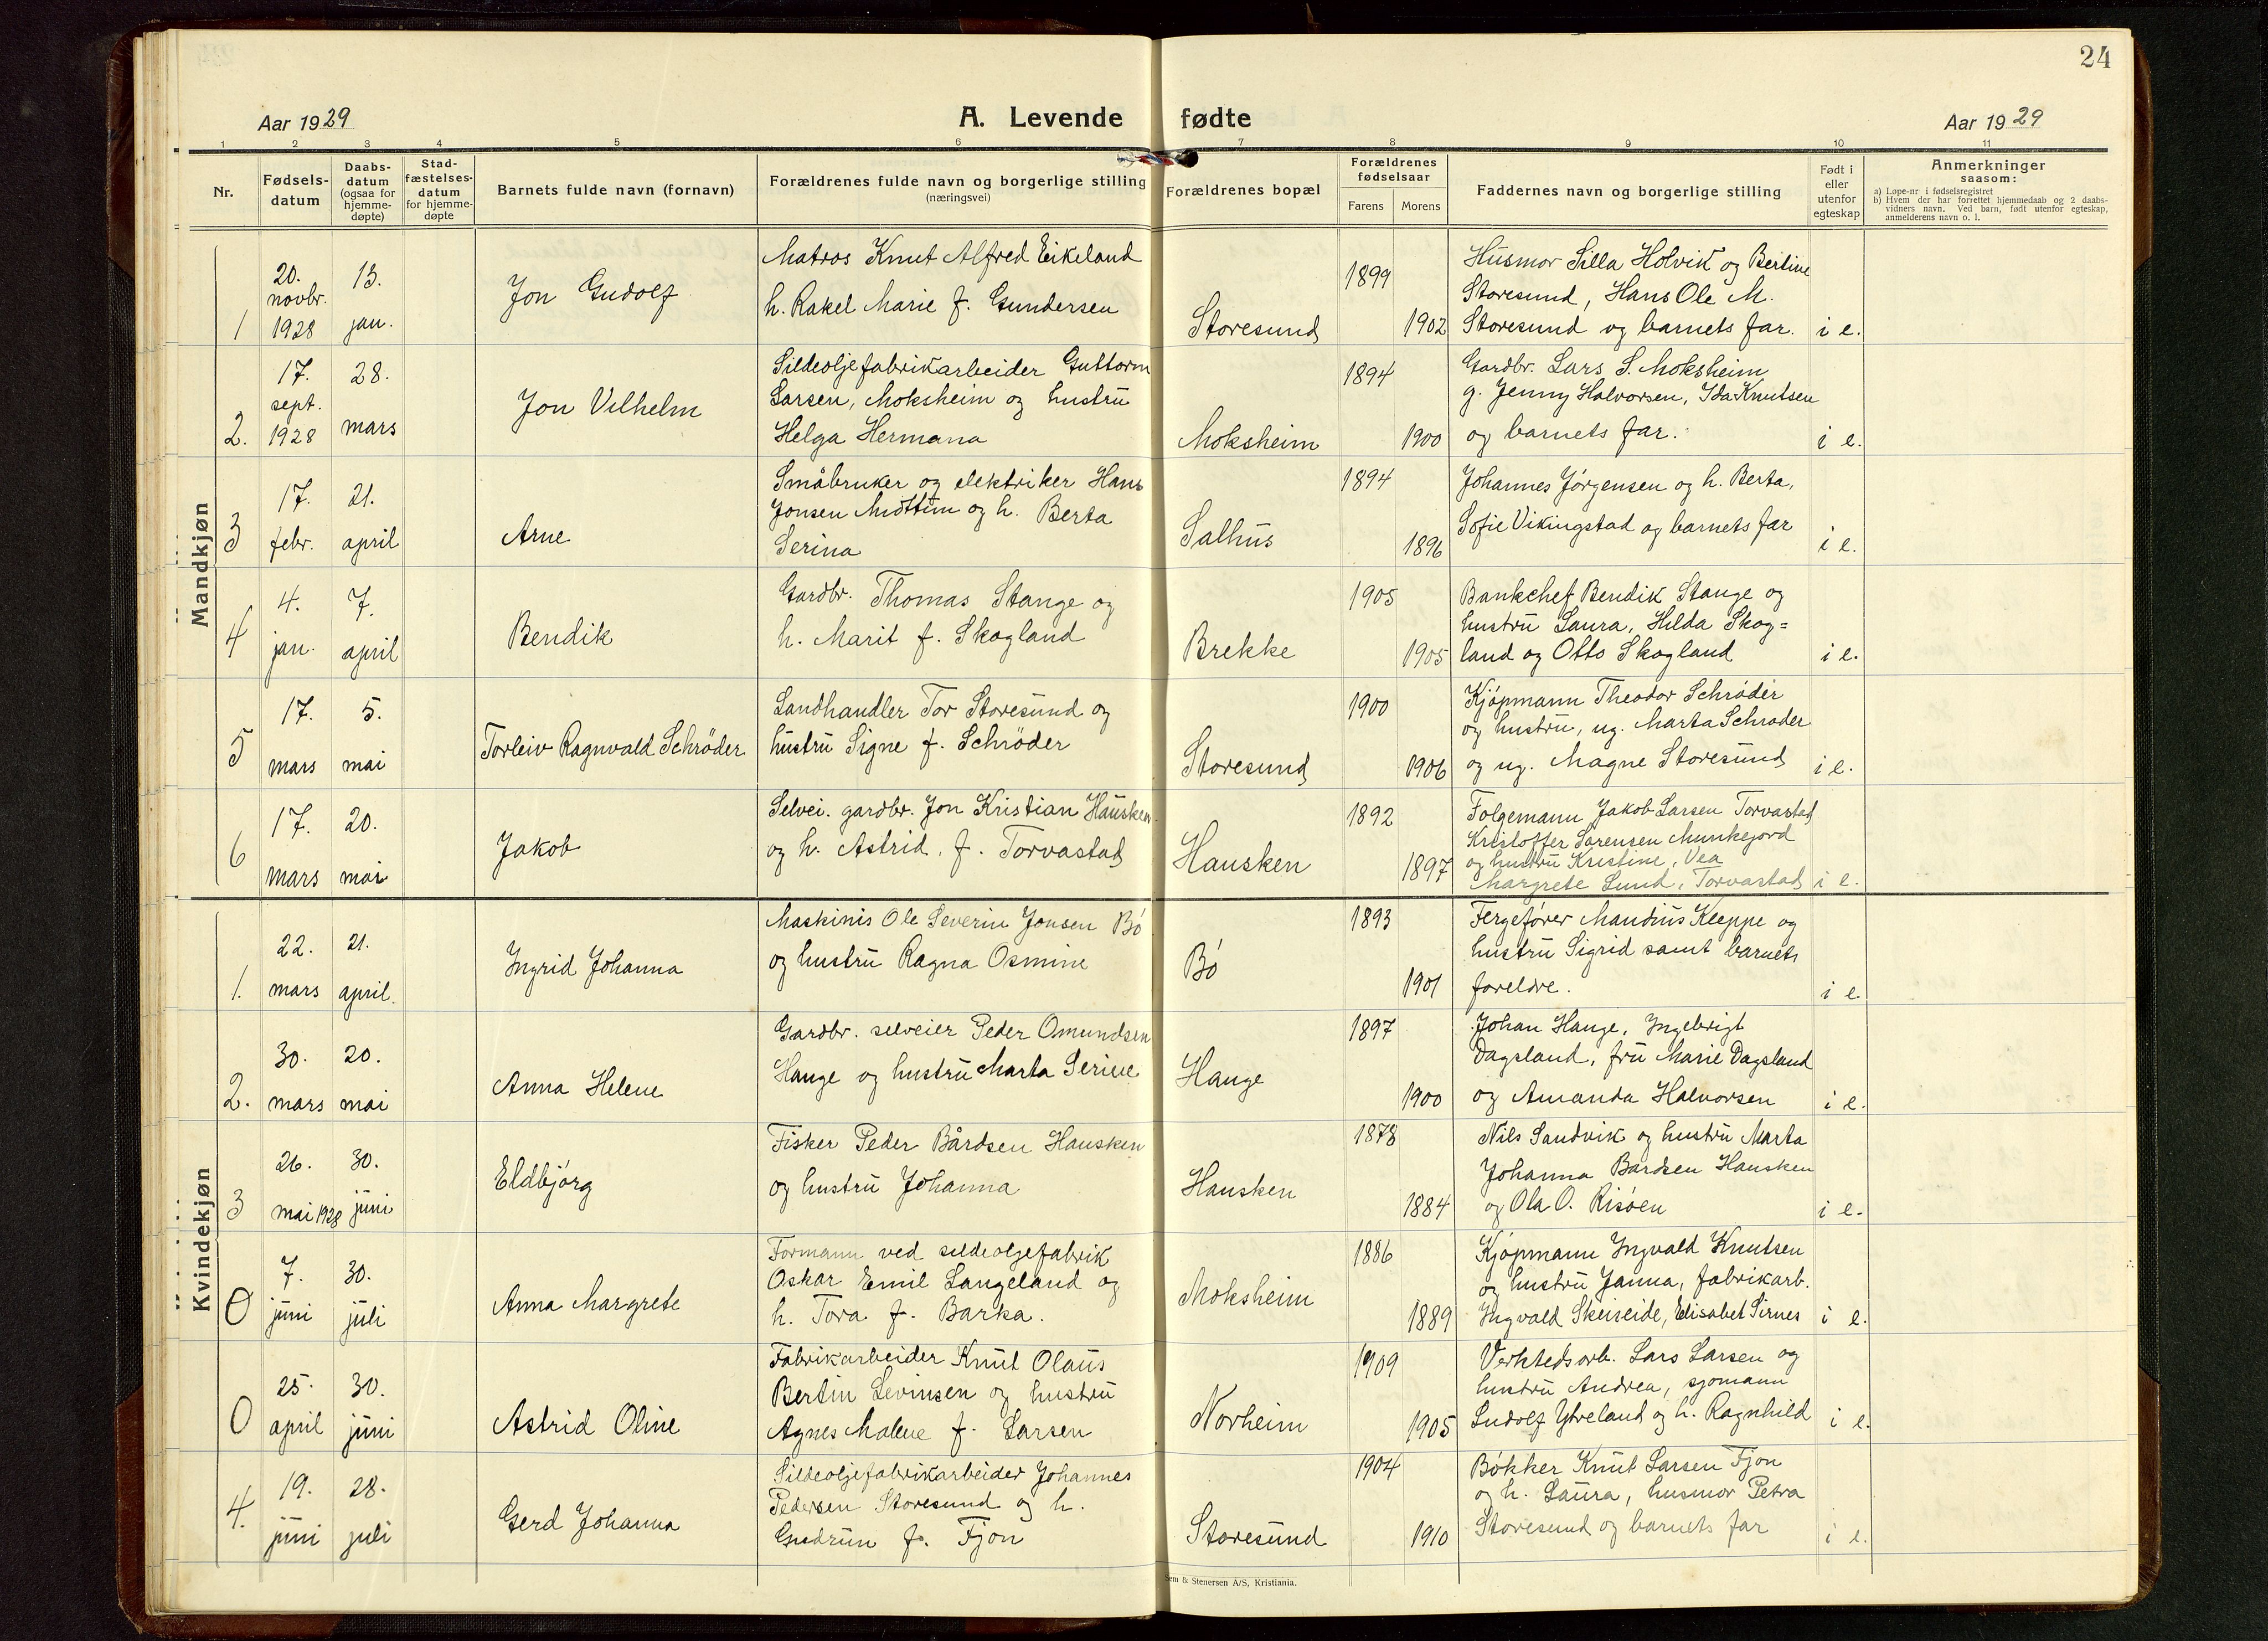 24
Aar 1929
A. Levende fødte
Aar 1929
1 2 3 4 5 6 7 8 9 10 11
Nr.
Fødsels-
datum
Daabs-
datum
(ogsaa for
hjemme-
døpte)
Stad-
fæstelses-
datum
for hjemme-
døpte
Barnets fulde navn (fornavn)
Forældrenes fulde navn og borgerlige stilling
(næringsvei)
Forældrenes bopæl
Forældrenes
fødselsaar
Farens Morens
Faddernes navn og borgerlige stilling
Født i
eller
utenfor
egteskap
Anmerkninger
saasom:
a) Løpe-nr i fødselsregistret
b) Hvem der har forrettet hjemmedaab og 2 daabs-
vidners navn. Ved barn, født utenfor egteskap,
anmelderens navn o. l.
Mandkjøn
1
20.
novbr.
1928
13.
jan.
Jon Gudolf
Matros Knut Alfred Eikeland
h. Rakel Marie f. Gundersen
Storesund
1899
1902
Husmor Silla Holvik og Bertine
Storesund, Hans Ole M.
Storesund og barnets far.
i e.
2.
17.
sept.
1928
28.
mars
Jon Vilhelm
Sildeoljefabrikarbeider Guttorm
Larsen, Moksheim og hustru
Helga Hermana
Moksheim
1894
1900
Gardbr. Lars S. Moksheim
g. Jenny Halvorsen, Ida Knutsen
og barnets far.
i e.
3
17.
febr.
21.
april
Arne
Småbruker og elektriker Hans
Jonsen og h. Berta
Serina
Salhus
1894
1896
Johannes Jørgensen og h. Berta,
Sofie Vikingstad og barnets far
i e.
4
4.
jan.
7.
april
Bendik
Gardbr. Thomas Stange og
h. Marit f. Skogland
Brekke
1905
1905
Bankchef Bendik Stange og
hustru Laura, Hilda Skog=
land og Otto Skogland
i e.
5
17.
mars
5.
mai
Torleiv Ragnvald Schrøder
Landhandler Tor Storesund og
hustru Signe f. Schrøder
Storesund
1900
1906
Kjøpmann Theodor Schrøder
og hustru, ug. Marta Schrøder
og ug. Magne Storesund
i e.
6
17.
mars
20.
mai
Jakob
Selvei. gardbr. Jon Kristian Hausken
og h. Astrid, f. Torvastad
Hausken
1892
1897
Folgemann Jakob Larsen Torvastad
Kristoffer Sørensen Munkejord
og hustru Kristine, Vea
Margrete Lund, Torvastad
i e.
Kvindekjøn
1.
22.
mars
21.
april.
Ingrid Johanna
Maskinis Ole Severin Jonsen Bø
og hustru Ragna Osmine
Bø
1893
1901
Fergefører Mandius Kleppe og
hustru Sigrid samt barnets
foreldre.
i e
2.
30.
mars
20.
mai
Anna Helene
Gardbr. selveier Peder Omundsen
Hauge og hustru Marta Serine
Hauge
1897
1900
Johan Hauge, Ingebrigt
Dagsland, fru Marie Dagsland
og Amanda Halvorsen
i e.
3
26.
mai 1928
30.
juni
Eldbjørg
Fisker Peder Bårdsen Hausken
og hustru Johanna
Hausken
1878
1884
Nils Sandvik og hustru Marta
Johanna Bardsen Hausken
og Ola O. Risøen
i e.
0
7.
juni
30.
juli
Anna Margrete
Formann ved sildeoljefabrik
Oskar Emil Langeland og
h. Tora f. Barka.
Moksheim
1886
1889
Kjøpmann Ingvald Knutsen
og hustru Janna, fabrikarb.
Ingvald Skeiseide, Elisabet Sirnes
i e.
0
25.
april
30.
juni
Astrid Oline
Fabrikarbeider Knut Olaus
Bertin Levinsen og hustru
Agnes Malene f. Larsen
Norheim
1909
1905
Verkstedsarb. Lars Larsen og
hustru Andrea, sjømann
Ludolf Ytreland og h. Ragnhild
i e.
4.
19.
juni
28.
juli
Gerd Johanna
Sildeoljefabrikarbeider Johannes
Pedersen Storesund og h.
Gudrun f. Fjon
Storesund
1904
1910
Bøkker Knut Larsen Fjon
og h. Laura, husmor Petra
Storesund og barnets far
i e.
Sem & Stenersen A/S, Kristiania.